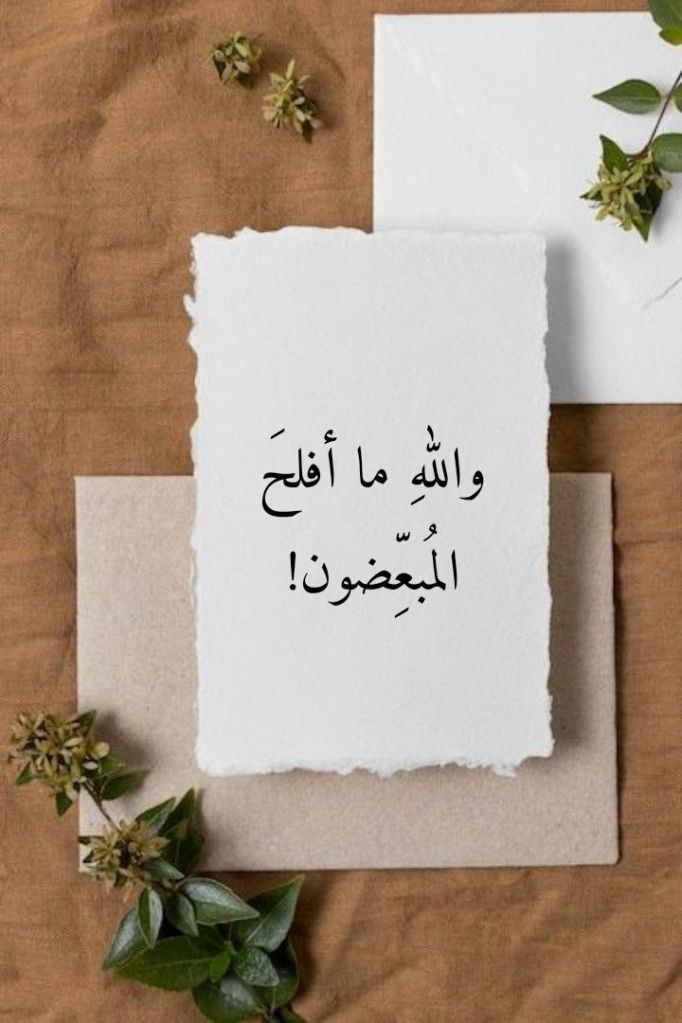 واللهِ ما أفلحَ
المُبعِّضون!